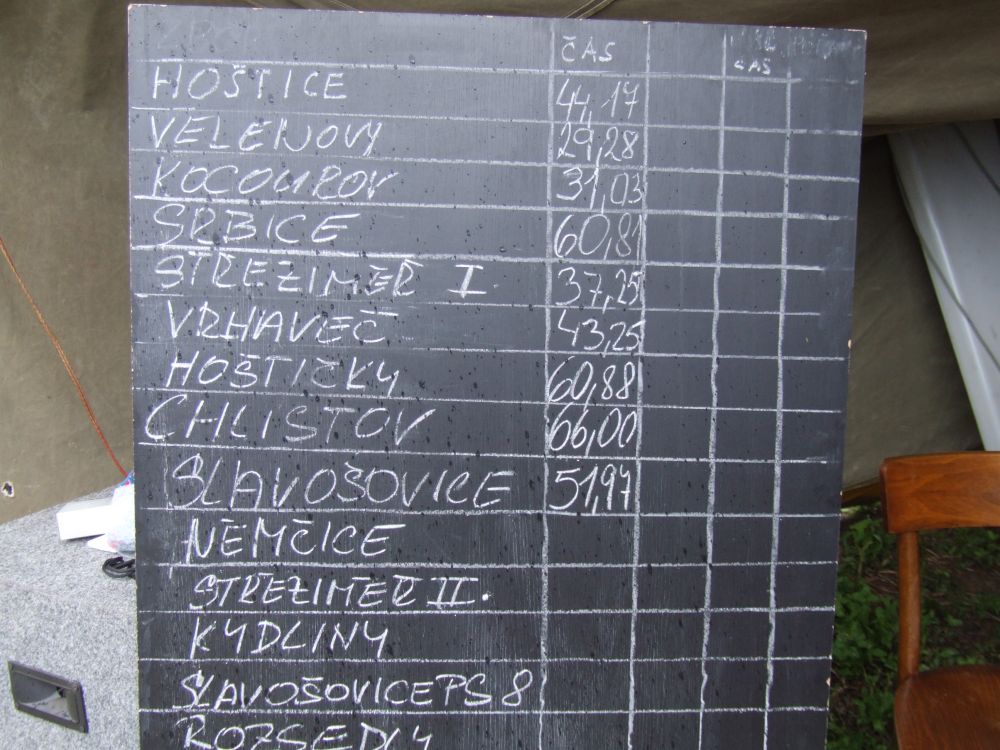 ČAS
ČAS
HOŠTICE 44,17
VELENOVY 29,28
KOCOUROV 31,03
SRBICE 60,81
STŘEZIMĚŘ I. 37,25
VRHAVEČ 43,25
HOŠTIČKY 60,88
CHLISTOV 66,00
SLAVOŠOVICE 51,97
NĚMČICE
STŘEZIMĚŘ II.
KYDLINY
SLAVOŠOVICE PS 8
ROZSEDLY